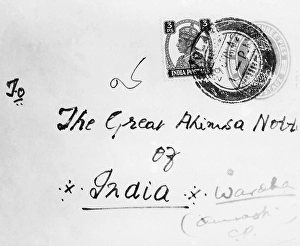 INDIA POSTAGE
To
The Great Ahimsa Nott
of
India Wardha
C.P.